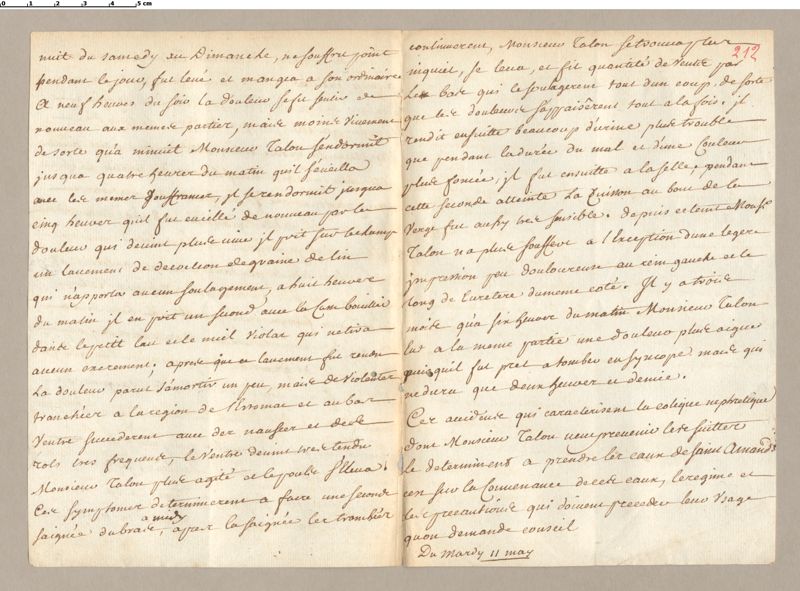 nuit du samedy au Dimanche, ne souffrit point
pendant le jour, fut levé et mangea a son ordinaire
a neuf heures du soir la douleur se fit sentir de
nouveau aux memes parties, mais moins vivement
de sorte qu'a minuit Monsieur Talon s'endormit
jusqua quatre heures du matin quil s'eveilla
avec les memes souffrances, il se rendormit jusqua
cinq heures quil fut eveillé de nouveau par la
douleur qui devint plus vive il prit sur le champ
un lavement de decoction de graine de lin
qui n'apporta aucun soulagement, a huit heures
du matin il en prit un second avec la Casse bouillie
dans le petit lait et le miel violat qui ne tira
aucun excrement. apres que ce lavement fut rendu
la douleur parut s'amortir un peu, mais de violentes
tranchées a la region de l'estomac et au bas
Ventre succederent avec des nausées et des
rots tres frequents, le Ventre devint tres tendu
Monsieur Talon plus agité et le pouls s'eleva.
Ces symptomes determinerent a faire une seconde
a midy
saignée du bras, apres la saignée les tranchées
212
continuerent, Monsieur Talon se trouva plus
inquiet, se leva, et fit quantités de vents par
le bas qui le soulagerent tout d'un coup, de sorte
que les douleurs s'appaisêrent tout a la fois. il
rendit ensuitte beaucoup d'urine plus trouble
que pendant la durée du mal et d'une Couleur
plus foncée, il fut ensuitte a la selle. pendant
cette seconde atteinte la Cuisson au bout de la
Verge fut aussy tres sensible. depuis ce tems Monsr
Talon n'a plus souffert a l'Exception d'une legere
impression peu douloureuse au rein gauche et le
long de l'uretere du meme coté. Il y a trois
mois qu'a six heures du matin Monsieur Talon
eut a la meme partie une douleur plus aigue
puisquil fut pret a tomber en syncope mais qui
ne dura que deux heures et demie.
Ces accidens qui caracterisent la colique nephretique
dont Monsieur Talon veut prevenir les suittes
le determinent a prendre les eaux de saint Amand
cest sur la Convenance de ces eaux, le regime et
les precautions qui doivent preceder leur Usage
quon demande conseil
Du Mardy 11 may
0 1 2 3 4 5 cm